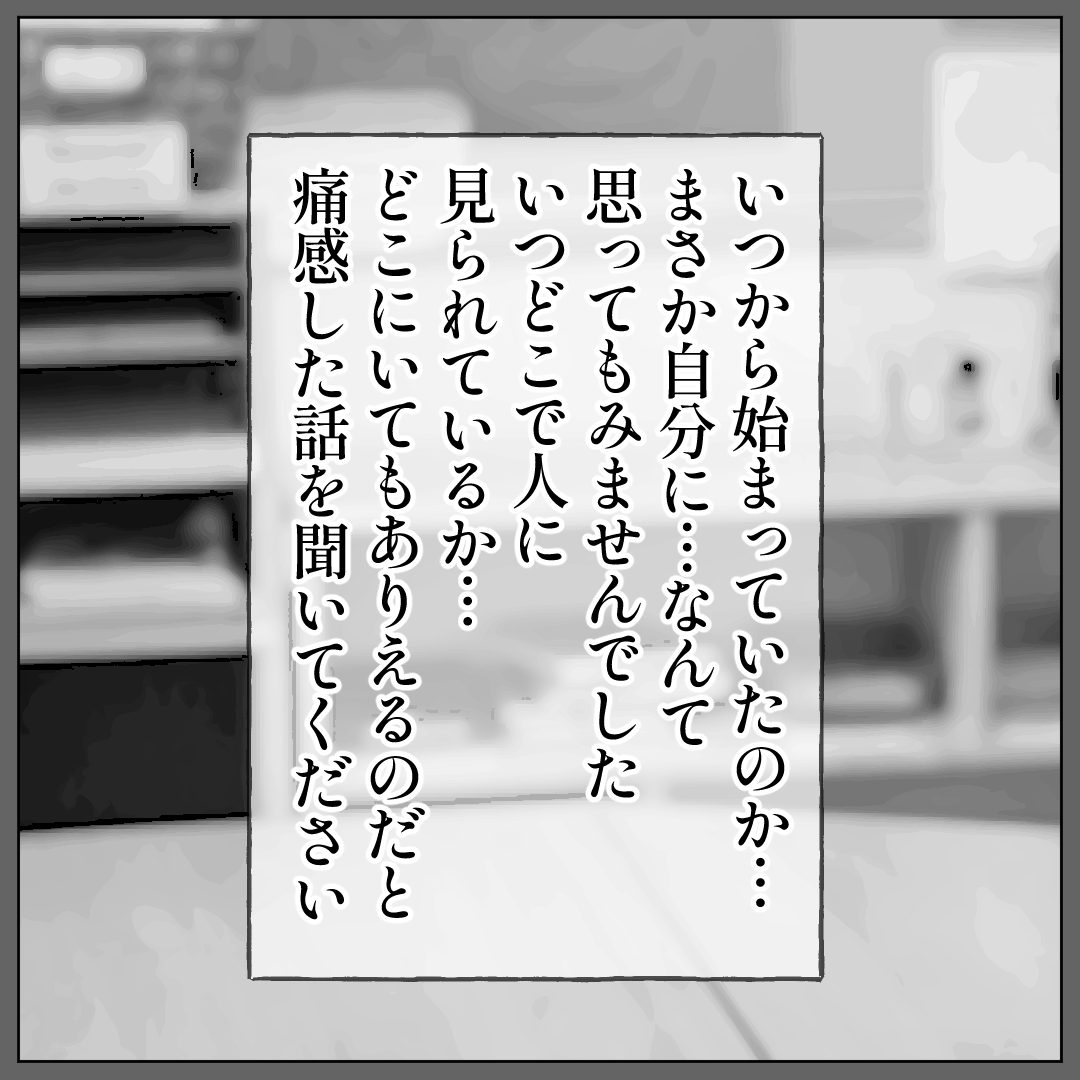 いつから始まっていたのか…
まさか自分に…なんて
思ってもみませんでした
いつどこで人に
見られているか…
どこにいてもありえるのだと
痛感した話を聞いてください